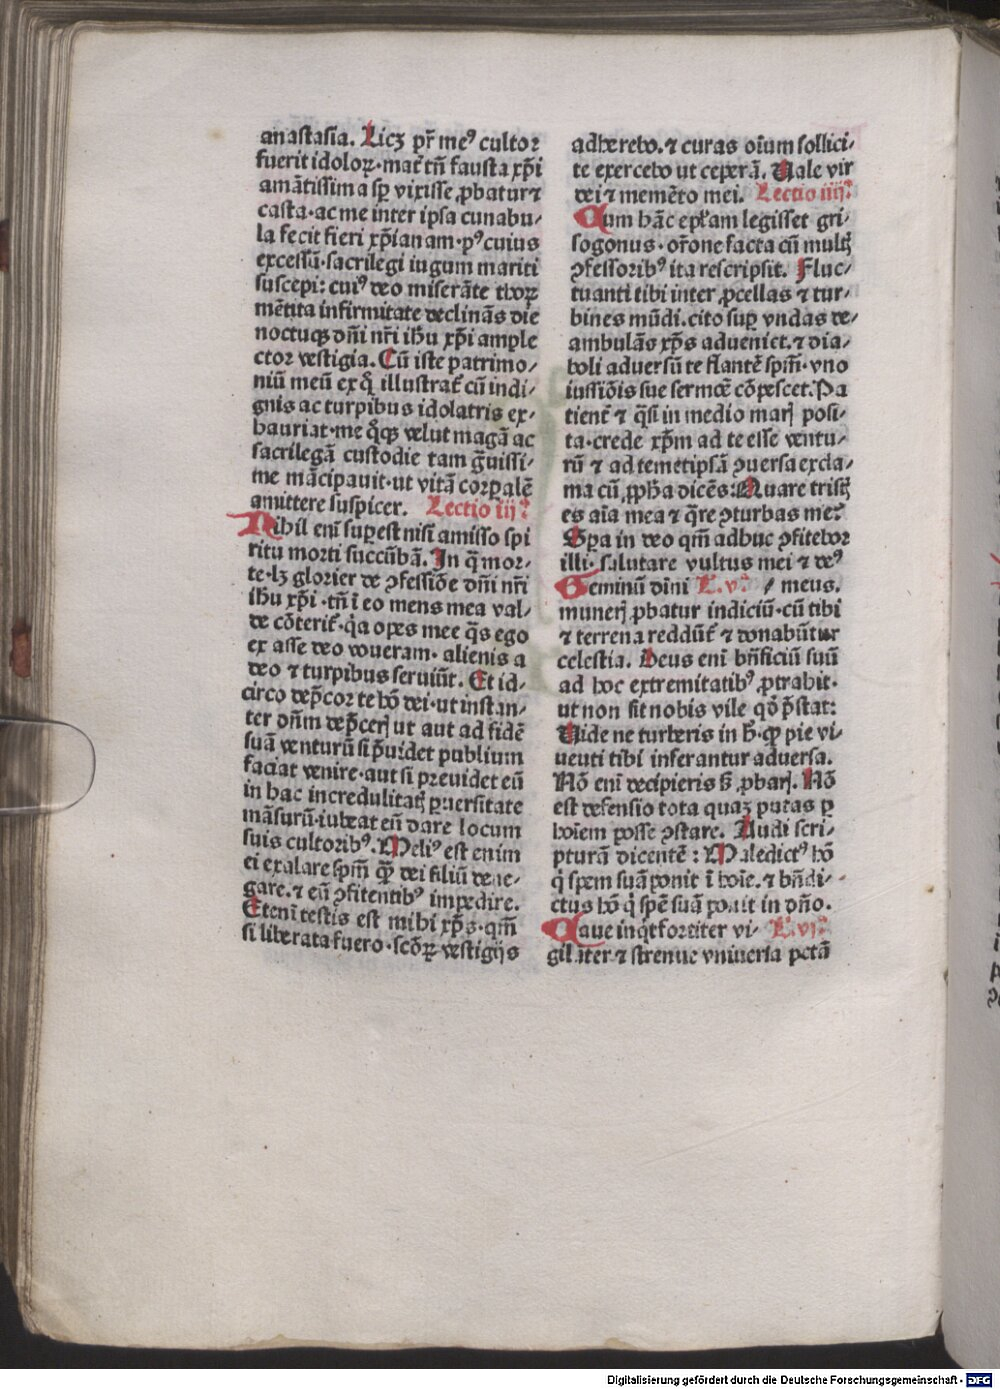 anastasia. Licꝫ pr̄ meꝰ cultor
fuerit idoloꝝ·mat̄ tn̄ fausta xp̄i
amātissima sp̄ vixisse ꝓbatur ⁊
casta·ac me inter ipsa cunabu⸗
la fecit fieri xp̄ianam·pꝰ cuius
excessū·sacrilegi iugum mariti
suscepi: cuiꝰ deo miserāte thoꝝ
mētita infirmitate declinās die
noctuqꝫ dn̄i nr̄i ihu xp̄i ample
ctor vestigia. Cū iste patrimo⸗
niū meū ex q̊ illustrat̄ cū indi⸗
gnis ac turpibus idolatris ex⸗
hauriat·me q̊qꝫ velut magā ac
sacrilegā custodie tam g̃uissi⸗
me mācipauit·ut vitā corꝑalē
amittere suspicer. Lectio iij ꝰ
Nihil enī suꝑest nisi amisso spi
ritu morti succūbā. In q̄ mor⸗
te·lꝫ glorier de ꝯfessiōe dn̄i nr̄i
ihu xp̄i·tn̄ ī eo mens mea val⸗
de cōterit̄·q̇a opes mee q̄s ego
ex asse deo voueram·alienis a
deo ⁊ turpibus seruiūt. Et id⸗
circo dep̄cor te hō dei·ut instan⸗
ter dn̄m dep̄cerꝭ ut aut ad fidē
suā venturū si p̄uidet publium
faciat venire·aut si preuidet eū
in hac incredulitatꝭ ꝑuersitate
māsurū·iubeat eū dare locum
suis cultoribꝰ. Meliꝰ est enim
ei exalare spm̄ qꝫ dei filiū dene⸗
gare.⁊ eū ꝯfitentibꝰ impedire.
Etenī testis est mihi xp̄s·qm̄
si liberata fuero·scōꝝ vestigijs
adherebo.⁊ curas oīum sollici⸗
te exercebo ut ceperā. Vale vir
dei ⁊ memēto mei. Lectio iiij ꝰ
Cum hāc epl̄am legisset gri⸗
sogonus·or̄one facta cū multꝭ
ꝯfessoribꝰ ita rescripsit. Fluc⸗
tuanti tibi inter ꝓcellas ⁊ tur⸗
bines mūdi.cito suꝑ vndas de⸗
ambulās xp̄s adueniet.⁊ dia⸗
boli aduersū te flantē spm̄·vno
iussiōis sue sermōe cōpescet. Pa
tient̄ ⁊ q̄si in medio marꝭ posi⸗
ta·crede xp̄m ad te esse ventu⸗
rū ⁊ ad temetipsā ꝯuersa excla⸗
ma cū ꝓpha dicēs: Quare tristꝭ
es aīa mea ⁊ q̄re ꝯturbas me?
Spa in deo qm̄ adhuc ꝯfitebor
illi·salutare vultus mei ⁊ deꝰ
Geminū dīni L. v ꝰ / meus.
munerꝭ ꝓbatur indiciū·cū tibi
⁊ terrena reddūt̄ ⁊ donabūtur
celestia. Deus enī bn̄ficiū suū
ad hoc extremitatibꝰ ꝓtrahit·
ut non sit nobis vile qd̄ p̄stat:
Vide ne turberis in h̄·qꝫ pie vi⸗
uenti tibi inferantur aduersa.
Nō enī deciperis sꝫ ꝓbarꝭ. Nō
est defensio tota quaꝫ putas ꝑ
hoīem posse ꝯstare. Audi scri⸗
pturā dicentē: Maledictꝰ hō
q̇ spem suā ponit ī hoīe.⁊ bn̄di⸗
ctus hō q̇ spē suā ponit in dn̄o.
Caue inq̇t fortiter vi⸗ L. vj ꝰ
gilāter ⁊ strenue vniuersa pctā